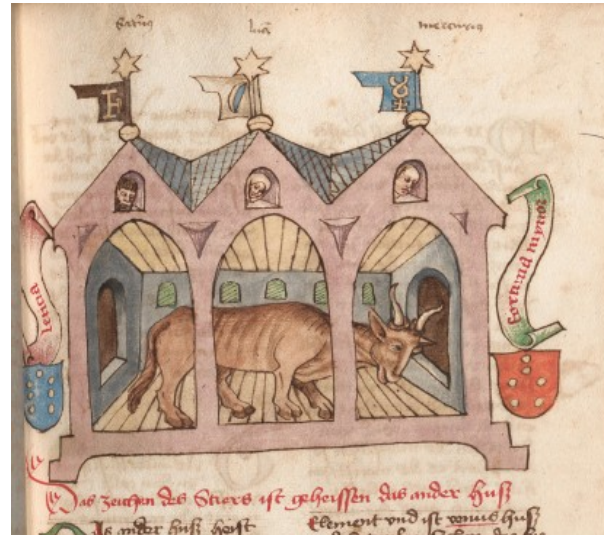 mercurius
fortuna mynor
Das zeichen des Stiers ist geheissen das ander huß
Das ander huß heist
Element vnd ist venus huß